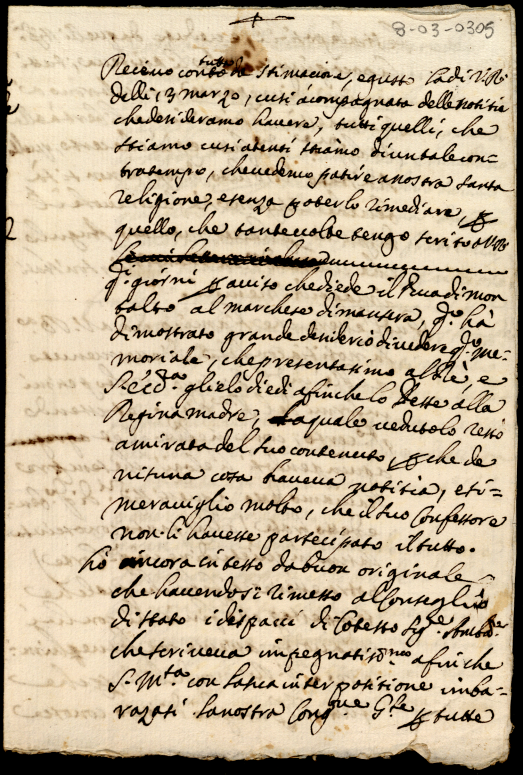 8-03-0305
Receuo con tutta stimaciona, e gusto la di V.R.
delli 13 marzo, cusi acompagnata delle notitie
che desideramo hauere, tutti quelli, che
stiamo cusi atenti stiamo di un tale con=
tratempo, che uedemo patire a nostra santa
religione, e senza poterlo rimediare,
quello, che tante uolte tengo scrito a V.R.
giorni auiso che diede il Duca di mon
talto al marchese di mansera, ha
dimostrato grande desiderio di uedere me-
moriale, che presentassimo al Rè, e
S. Ecc.a glielo diedi afinche lo desse alla
Regina madre, la quale uedutolo restò
amirata del suo contenuto, che de
nisuna cosa haueua notitia, e si=
merauiglio molto, che il suo Confessore
non li hauesse partecipato il tutto.
hò ancora inteso da buon originale
che hauendosi rimesso al Conseglio
di stato i dispacci di Cotesto Sig.e Amb.r
che scriueua impegnatis.mo afinche
S. M.ta con la sua interpositione imba=
razasi la nostra Cong.ne G.le tutte